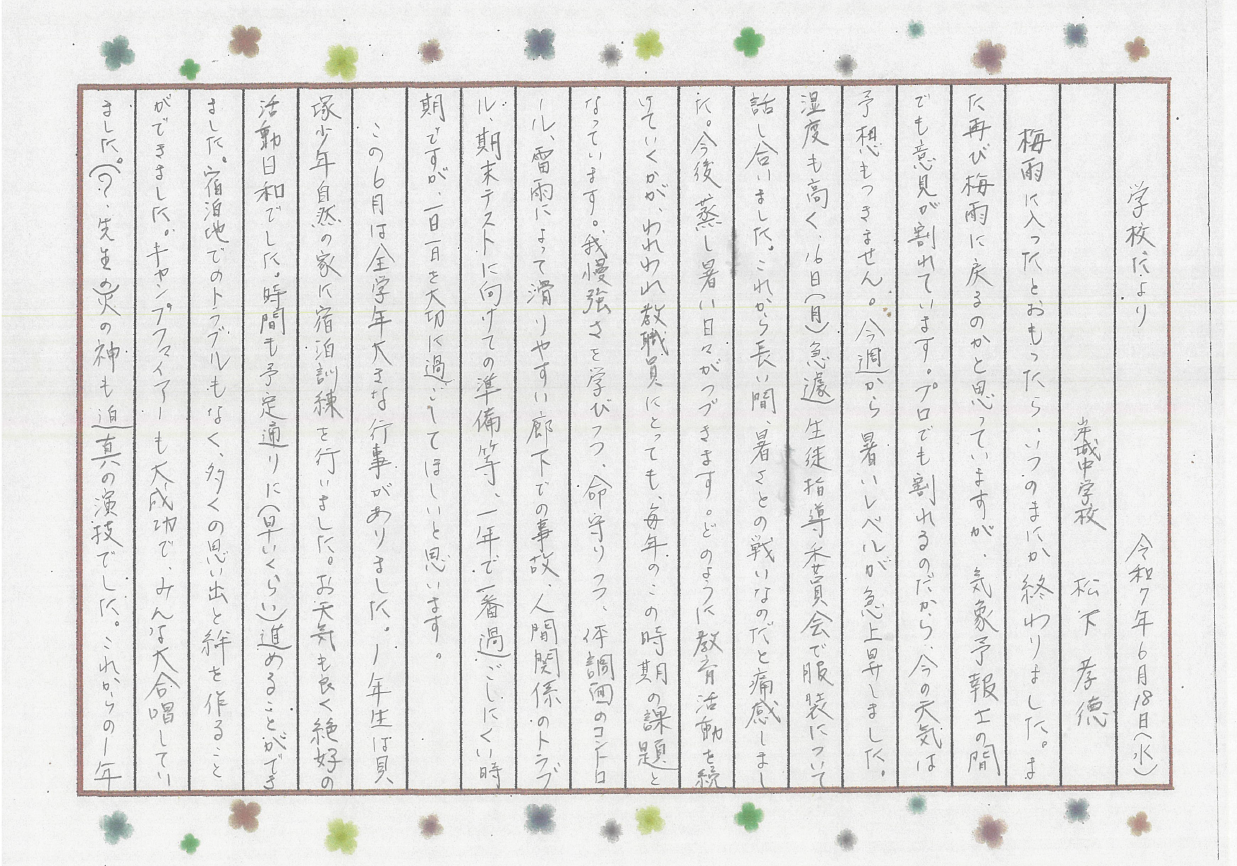 学校だより　令和7年6月18日(水)
岩城中学校　松下　孝徳
梅雨に入ったとおもったら、いつのまにか終わりました。ま
た再び梅雨に戻るのかと思っていますが、気象予報士の間
でも意見が割れています。プロでも割れるのだから、今の天気は
予想もつきません。今週から暑いレベルが急上昇しました。
湿度も高く、16日(月)急遽生徒指導委員会で服装について
話し合いました。これから長い間、暑さとの戦いなのだと痛感しまし
た。今後蒸し暑い日々がつづきます。どのように教育活動を続
けていくかが、われわれ教職員にとっても、毎年のこの時期の課題と
なっています。我慢強さを学びつつ、命守りつつ、体調面のコントロ
ール、雷雨によって滑りやすい廊下での事故、人間関係のトラブ
ル、期末テストに向けての準備等、一年で一番過ごしにくい時
期ですが、一日一日を大切に過ごしてほしいと思います。
この6月は全学年大きな行事がありました。1年生は貝
塚少年自然の家に宿泊訓練を行いました。お天気も良く絶好の
活動日和でした。時間も予定通りに(早いくらい)進めることができ
ました。宿泊地でのトラブルもなく、多くの思い出と絆を作ること
ができました。キャンプファイアーも大成功で、みんな大合唱してい
ました。(?)先生の火の神も迫真の演技でした。これからの1年